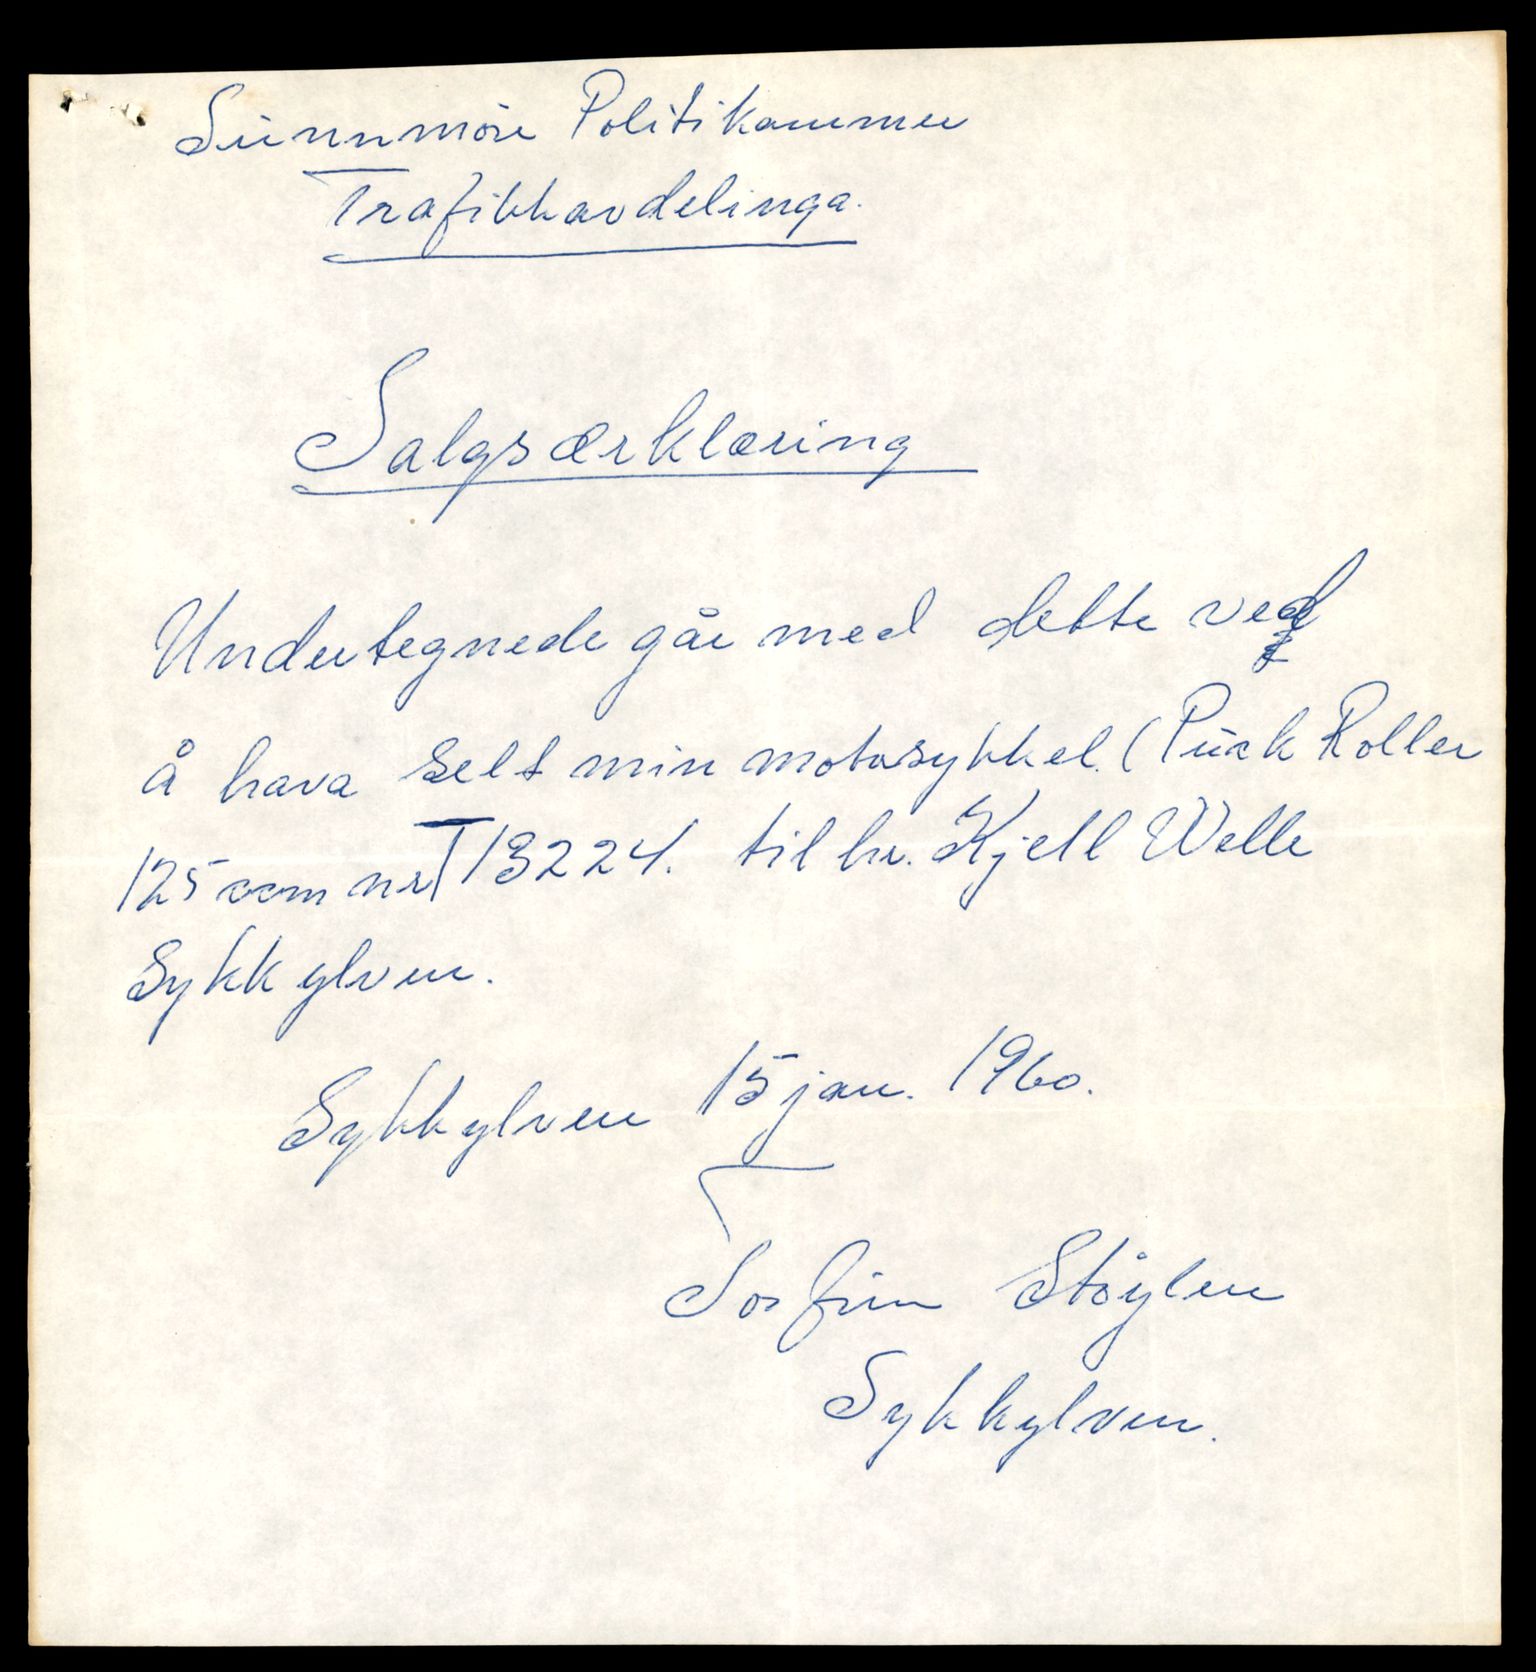 Sunnmöre Politikammer
Trafikkavdelinga.
Salgsærklæring
Undertegnede går med dette ved
å hava selt min motorsykkel. (Puck Roller
125 ccm nr T 13224. til hr. Kjell Welle
Sykkylven.
Sykkylven 15 jan. 1960.
Torfinn Støylen
Sykkylven.